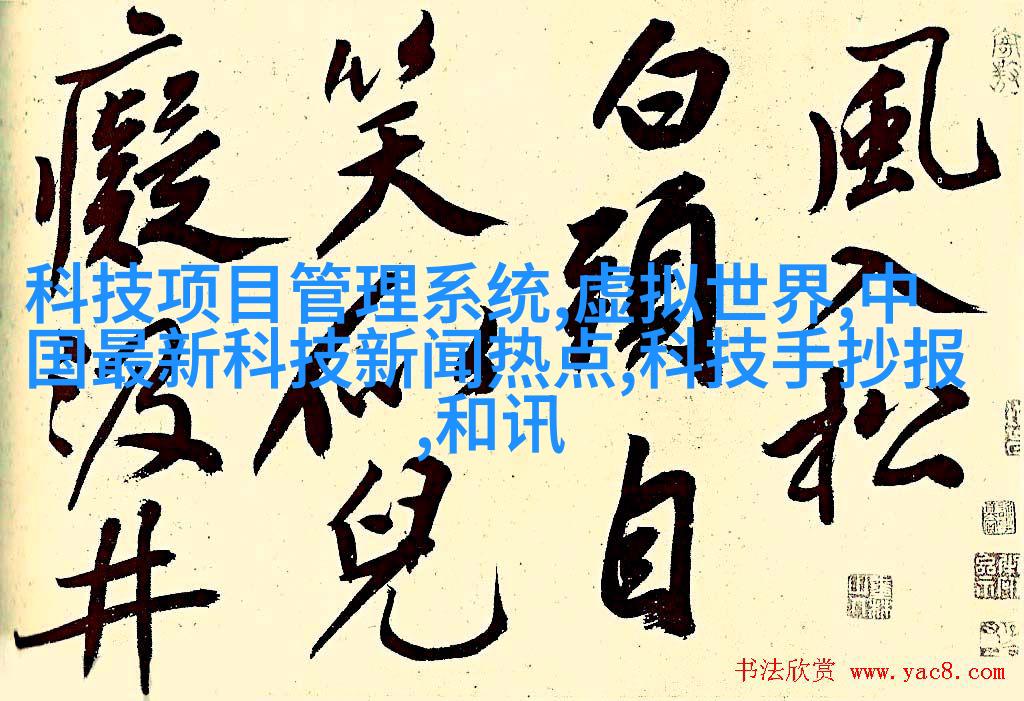 風入松
白頭自
笑似兒
癡汲井
科技项目管理系统,虚拟世界,中
国最新科技新闻热点,科技手抄报
,和讯
书法欣赏 www.yac8.com